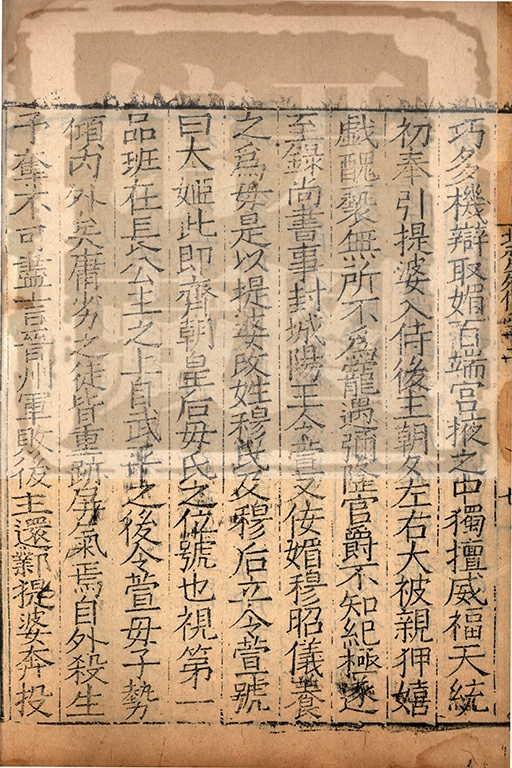 巧多機辯取媚百端宫掖之中獨擅威福天統
初奉引提婆入侍後主朝夕左右大被親狎嬉
戲醜褻無所不爲寵遇彌隆官爵不知紀極遂
至錄尚書事封城陽王令萱又佞媚穆昭儀養
之爲母是以提婆改姓穆氏及穆后立令萱號
曰太姬此即齊朝皇后母氏之位號也視第一
品班在長公主之上自武平之後令萱母子勢
傾内外矣庸劣之徒皆重跡屏氣焉自外殺生
予奪不可盡言晉州軍敗後主還鄴提婆奔投